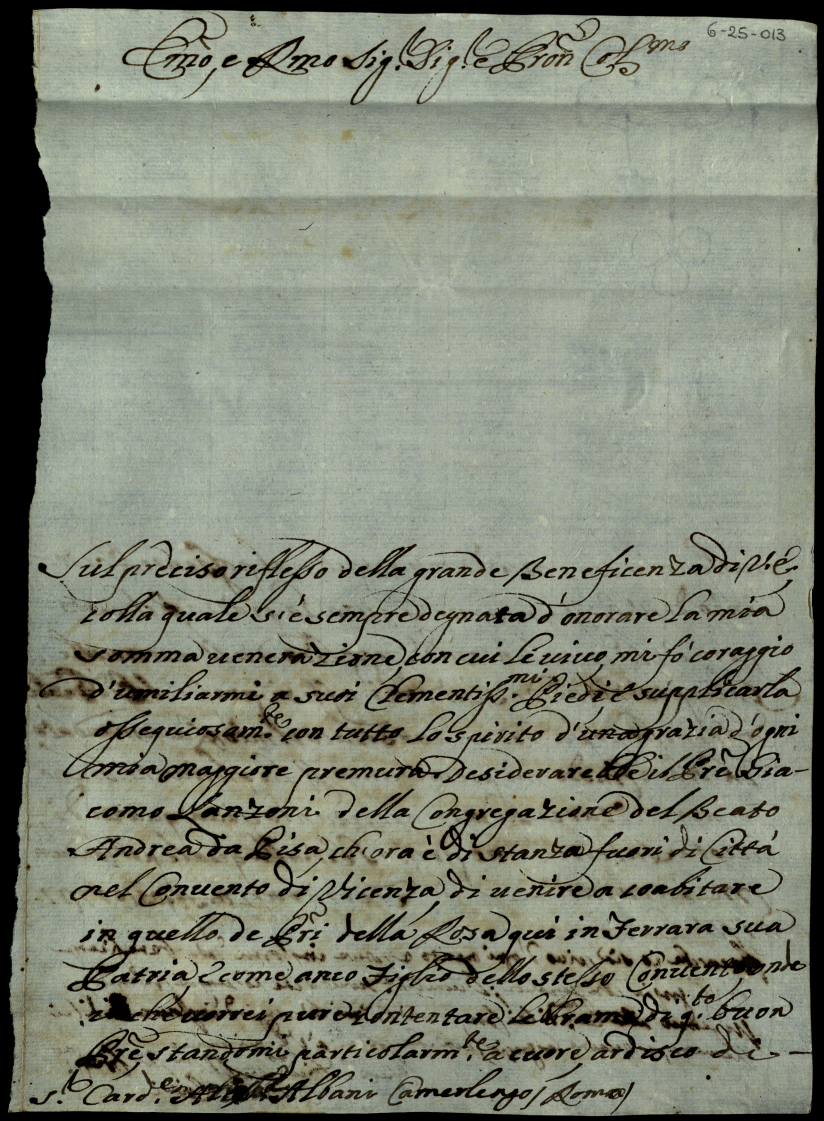 6-25-013
Emõ, e Rmo Sig.r Sig.r e Pron Col.mo
Sul preciso riflesso della grande Beneficenza di V.E.
colla quale s'è sempre degnata d'onorare la mia
somma venerazione, con cui le vivo, mi fò coraggio
d'umiliarmi a suoi Clementiss.mi Piedi e supplicarla
ossequiosam.te con tutto lo spirito d'una grazia d'ogni
mia maggiore premura. Desiderarebbe il Prẽ Gia-
como Lanzoni della Congregazione del Beato
Andrea da Pisa, ch'ora è di stanza fuori di Città
nel Convento di Vicenza, di venire a coabitare
in quello de Pr̃i della Rosa quì in Ferrara sua
Patria, e come anco Figlio dello stesso Convento, onde
che vorrei pure contentare le brame di q.to buon
Prẽ, standomi particolarm.te a cuore, ardisco di
S.r Card.e Albani Camerlengo / Roma /